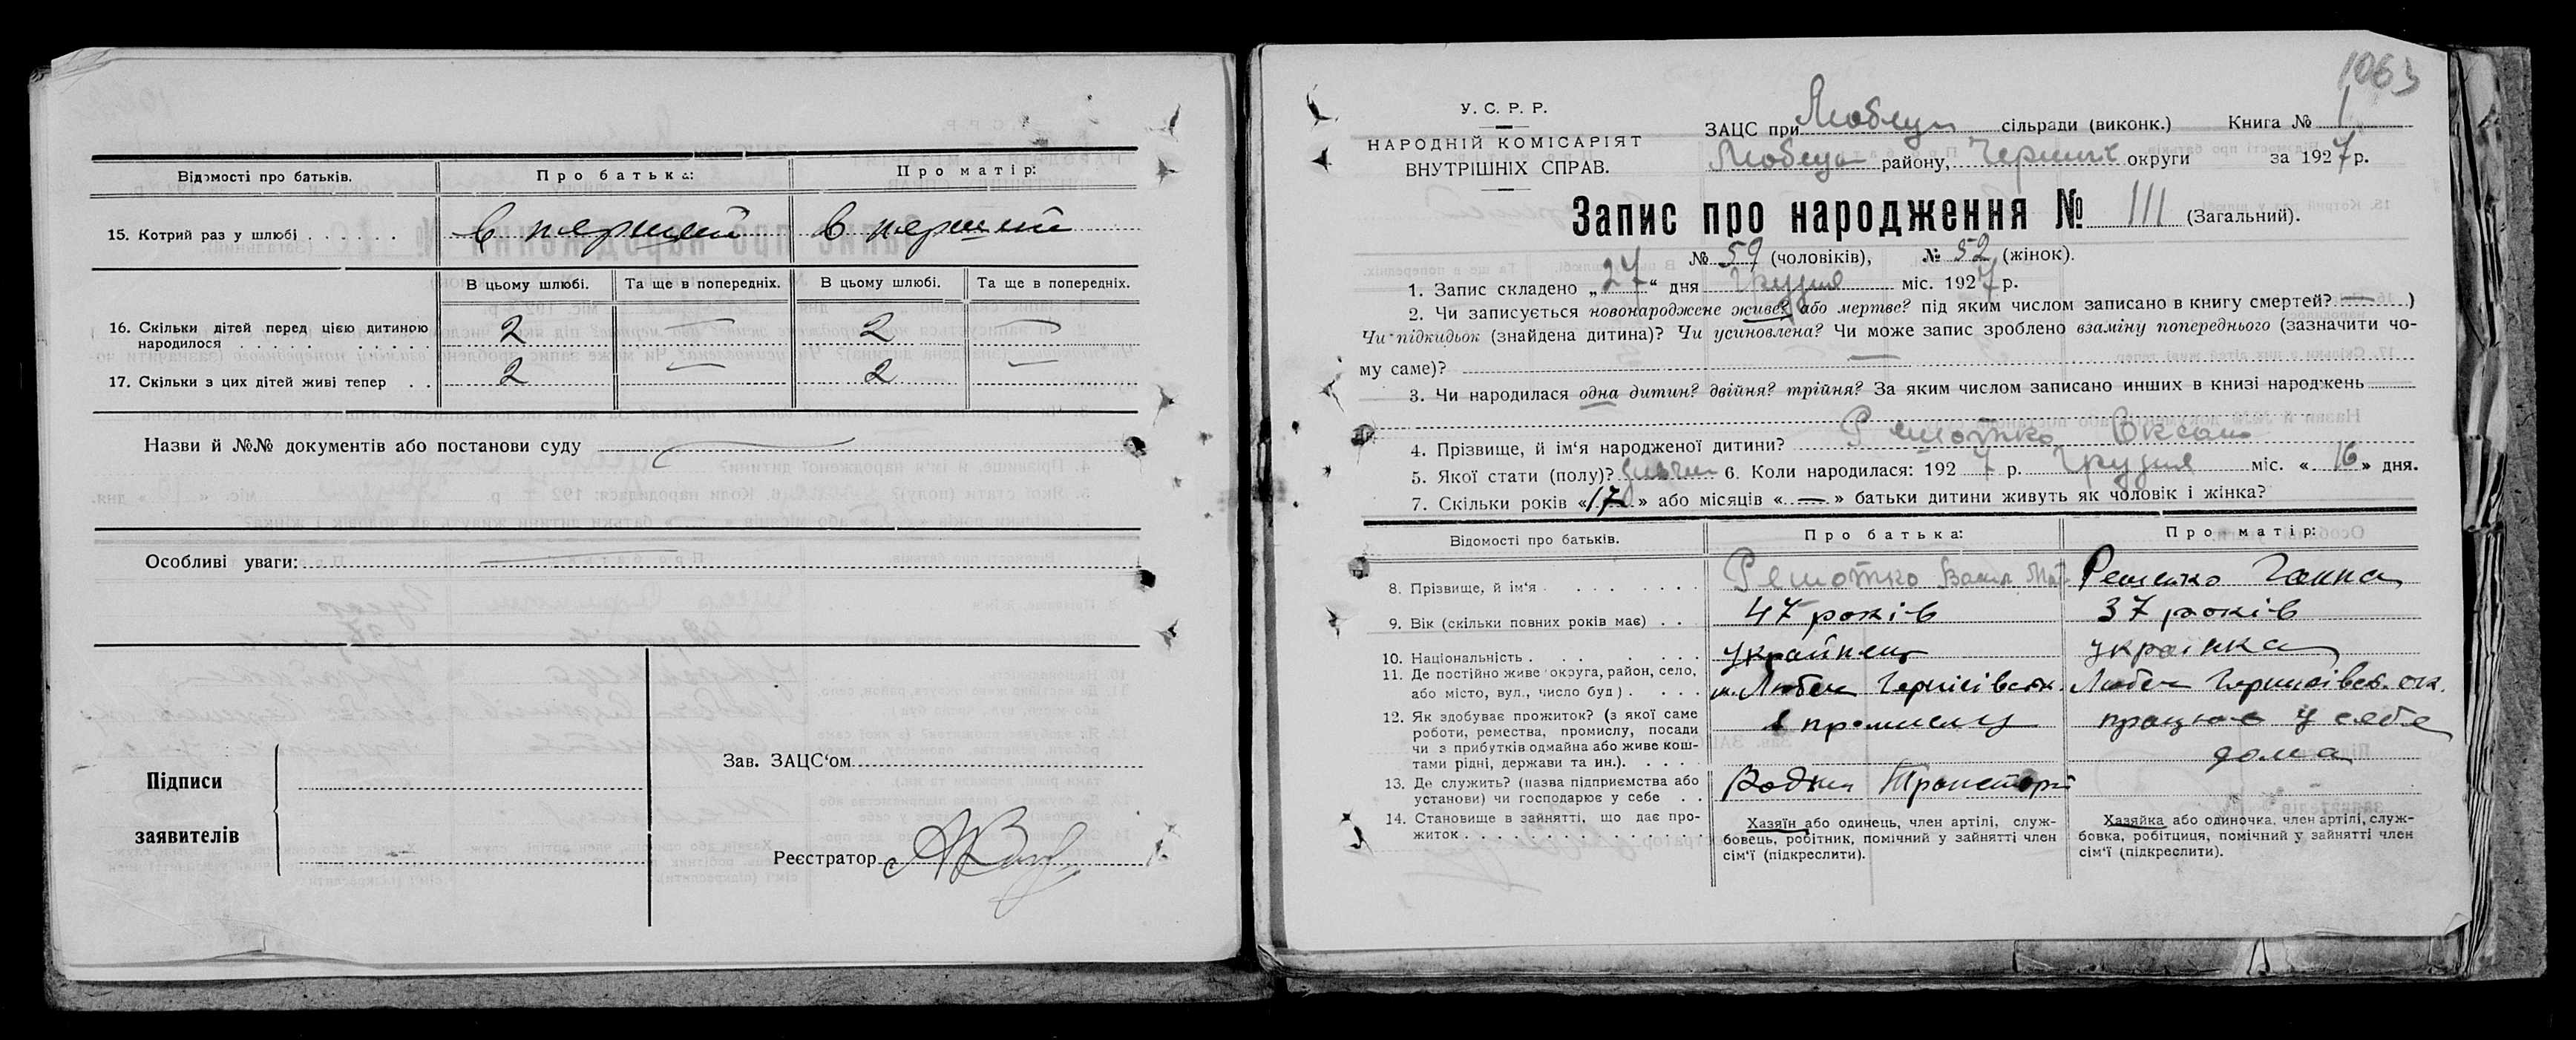 Відомості про батьків. Про батька: Про матір:
15. Котрий раз у шлюбі . . . . . . в перший в перший
В цьому шлюбі. Та ще в попередніх. В цьому шлюбі. Та ще в попередніх.
16. Скільки дітей перед цією дитиною
народилося . . . . . . . 2 — 2 —
17. Скільки з цих дітей живі тепер . . 2 — 2 —
Назви й №№ документів або постанови суду —
Особливі уваги: —
Підписи
заявителів
Зав. ЗАЦС'ом
Реєстратор
1063
У. С. Р. Р.
НАРОДНІЙ КОМІСАРІЯТ
ВНУТРІШНІХ СПРАВ.
ЗАЦС при сільради (виконк.) Книга № 1
району, округи за 1927 р.
Запис про народження № 111 (Загальний).
№ 59 (чоловіків), № 52 (жінок).
1. Запис складено „27“ дня Грудня міс. 1927 р.
2. Чи записується новонароджене живе? або мертве? під яким числом записано в книгу смертей? — )
Чи підкидьок (знайдена дитина)? Чи усиновлена? Чи може запис зроблено взаміну попереднього (зазначити чо-
му саме)? —
3. Чи народилася одна дитин? двійня? трійня? За яким числом записано инших в книзі народжень
4. Прізвище, й ім'я народженої дитини? Решотко Оксана
5. Якої стати (полу)? 6. Коли народилася: 1927 р. Грудня міс. «16» дня.
7. Скільки років «17» або місяців «—» батьки дитини живуть як чоловік і жінка?
Відомості про батьків. Про батька: Про матір:
8. Прізвище, й ім'я . . . . . . . Решотко Васил Мат Решетко Ганна
9. Вік (скільки повних років має) . . 47 років 37 років
10. Національність . . . . . . українец українка
11. Де постійно живе округа, район, село,
або місто, вул., число буд) . . . . м. Любеч Чернігівськ. Любеч Чернигівськ. ок.
12. Як здобуває прожиток? (з якої саме
роботи, ремества, промислу, посади
чи з прибутків одмайна або живе кош-
тами рідні, держави та ин.). . . . . з промислу працює у себе
дома
13. Де служить? (назва підприємства або
установи) чи господарює у себе . . Водний Транспорт
14. Становище в зайнятті, що дає про-
житок . . . . . . . . . . . . .
Хазяїн або одинець, член артілі, служ-
бовець, робітник, помічний у зайнятті член
сім'ї (підкреслити).
Хазяйка або одиночка, член артілі, служ-
бовка, робітциця, помічний у зайнятті член
сім'ї (підкреслити).